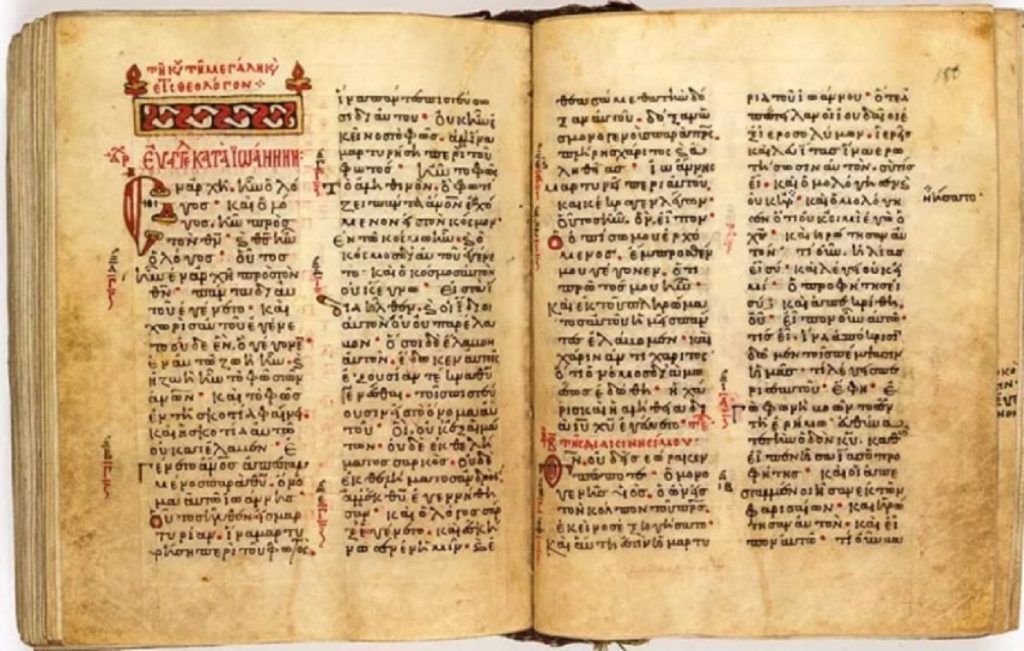 τῆ κυ τῆ μεγάλη κυ
εἰς θεολόγον
Ευ κατὰ Ἰωάννην:
Ἐν ἀρχῆ ἦν ὁ λό
γος· καὶ ὁ λό
γος ἦν πρὸς
τὸν θν· ϗ θς ἦν
ὁ λόγος· οὗτος
ἦν ἐν ἀρχῆ πρὸς τὸν
θν· πάντα δι' αὐ
τοῦ ἐγένετο· καὶ
χωρὶς αὐτοῦ ἐγένε
το οὐδὲ ἕν· ὃ γέγονεν
ἐν αὐτῶ ζωὴ ἦν· ϗ
ἡ ζωὴ ἦν τὸ φῶς τῶν
ἀνων· καὶ τὸ φῶς
ἐν τῆ σκοτία φαίνει·
καὶ ἡ σκοτία αὐτὸ
οὐ κατέλαβεν· Ἐ
γένετο ἄνος ἀπεσταλ
μένος παρὰ θυ· ὄνο
μα αὐτῶ ἰωάννης·
Οὗτος ἦλθεν εἰς μαρ
τυρίαν· ἵνα μαρτυ
ρήση περὶ τοῦ φωτός·
ἵνα πάντες πιστεύσω
σι δι' αὐτοῦ· οὐκ ἦν ἐ
κεῖνος τὸ φῶς· ἀλλ' ἵνα
μαρτυρήση περὶ τοῦ
φωτός· ἦν τὸ φῶς
τὸ ἀληθινόν· ὃ φωτί
ζει πάντα ἄνον ἐρχό
μενον εἰς τὸν κόσμον·
Ἐν τῶ κόσμω ἦν· ϗ ὁ
κόσμος δι' αὐτοῦ ἐγένε
το· καὶ ὁ κόσμος αὐτὸν
οὐκ ἔγνω· εἰς τὰ ἴ
δια ἦλθεν· ϗ οἱ ἴδιοι
αὐτὸν οὐ παρέλα
βον· ὅσοι δὲ ἔλαβον
αὐτόν· ἔδωκεν αὐτοῖς
ἐξουσίαν τέκνα θυ
γενέσθαι· τοῖς πιστεύ
ουσιν εἰς τὸ ὄνομα αὐ
τοῦ· οἳ οὐκ ἐξ αἱμά
των· οὐδὲ ἐκ θελή
ματος σαρκός· οὐδὲ
ἐκ θελήματος ἀνδρός·
ἀλλ' ἐκ θυ ἐγεννήθη
σαν· καὶ ὁ λόγος σὰρ
ξ ἐγένετο· καὶ ἐσκή
νωσεν ἐν ἡμῖν· ϗ ἐ
θεασάμεθα τὴν δό
ξαν αὐτοῦ· δόξαν ὡς
μονογενοῦς παρὰ πρς·
πλήρης χάριτος ϗ ἀ
ληθείας· ἰωάννης
μαρτυρεῖ περὶ αὐτοῦ,
καὶ κέκραγε λέγων·
οὗτος ἦν, ὃν εἶπον·
Ὁ ὀπίσω μου ἐρχό
μενος, ἔμπροσθέν
μου γέγονεν· ὅτι
πρῶτός μου ἦν·
Καὶ ἐκ τοῦ πληρώμα
τος αὐτοῦ ἡμεῖς πάν
τες ἐλάβομεν· καὶ
χάριν ἀντὶ χάριτος·
ὅτι ὁ νόμος διὰ μωσέ
ως ἐδόθη· ἡ χά
ρις καὶ ἡ ἀλήθεια δι
ὰ ιυ χυ ἐγένετο·
τῆ β τῆς διακινησίμου
Θν, οὐδεὶς ἑώρακεν
πώποτε· ὁ μονο
γενὴς υἱός· ὁ ὢν εἰς
τὸν κόλπον τοῦ πρς·
ἐκεῖνος ἐξηγήσατο·
Καὶ αὕτη ἐστὶν ἡ μαρτυ
ρία τοῦ ἰωάννου· ὅτε ἀ
πέστειλαν οἱ ἰουδαῖοι ἐ
ξ ἱεροσολύμων· ἱερεῖς
καὶ λευίτας ἵνα ἐρω
τήσωσιν αὐτόν· σὺ τίς
εἶ· καὶ ὡμολόγησεν
καὶ ὡμολόγη
σεν ὅτι οὐκ εἰμὶ ἐγὼ ὁ
χς· καὶ ἠρώτησαν αὐ
τόν· τί οὖν· ἠλίας
εἶ σύ· καὶ λέγει οὐκ εἰ
μί· ὁ προφήτης εἶ
σύ; καὶ ἀπεκρίθη,
οὔ· εἶπον οὖν αὐτῶ·
τίς εἶ· ἵνα ἀπόκρισι
ν δῶμεν τοῖς πέμψασιν
ἡμᾶς· τί λέγεις πε
ρὶ σεαυτοῦ· ἔφη· Ἐ
γὼ φωνὴ βοῶντος ἐν
τῆ ἐρήμω· εὐθύνα
τε τὴν ὁδὸν κυ· καθὼς
εἶπεν ἡσαΐας ὁ προ
φήτης· καὶ οἱ ἀπε
σταλμένοι ἦσαν ἐκ τῶν
φαρισαίων· καὶ ἠρώ
τησαν αὐτόν· καὶ εἶ
πον αὐτῶ· τί οὖν βα